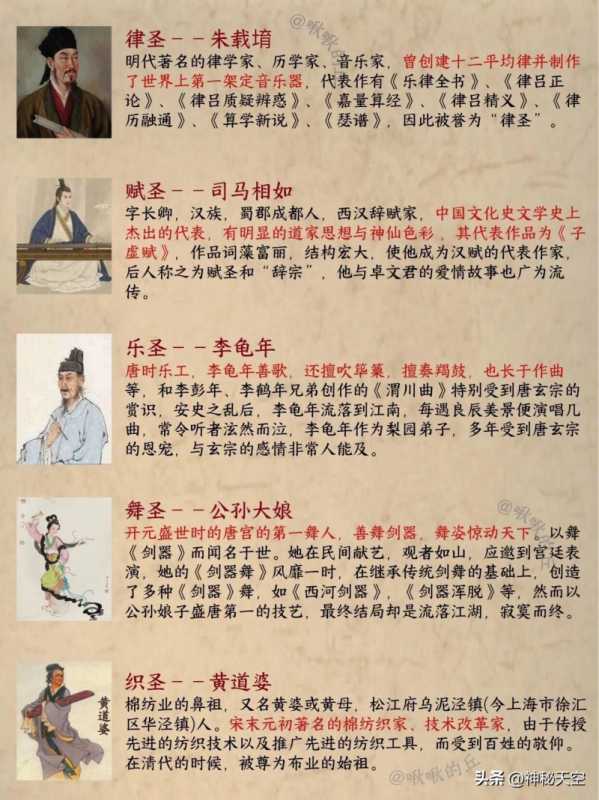 @啾啾的
律圣--朱载堉
明代著名的律学家、历学家、音乐家，曾创建十二平均律并制作
了世界上第一架定音乐器，代表作有《乐律全书》、《律吕正
论》、《律吕质疑辨惑》、《嘉量算经》、《律吕精义》、《律
历融通》、《算学新说》、《瑟谱》，因此被誉为“律圣”。
赋圣--司马相如
字长卿，汉族，蜀郡成都人，西汉辞赋家，中国文化史文学史上
杰出的代表，有明显的道家思想与神仙色彩，其代表作品为《子
虚赋》，作品词藻富丽，结构宏大，使他成为汉赋的代表作家，
后人称之为赋圣和“辞宗”，他与卓文君的爱情故事也广为流
传。
乐圣--李龟年
唐时乐工，李龟年善歌，还擅吹筚篥，擅奏羯鼓，也长于作曲
等，和李彭年、李鹤年兄弟创作的《渭川曲》特别受到唐玄宗的
赏识，安史之乱后，李龟年流落到江南，每遇良辰美景便演唱几
曲，常令听者泫然而泣，李龟年作为梨园弟子，多年受到唐玄宗
的恩宠，与玄宗的感情非常人能及。
@啾啾的丘
舞圣--公孙大娘
开元盛世时的唐宫的第一舞人，善舞剑器，舞姿惊动天下。以舞
《剑器》而闻名于世。她在民间献艺，观者如山，应邀到宫廷表
演，她的《剑器舞》风靡一时，在继承传统剑舞的基础上，创造
了多种《剑器》舞，如《西河剑器》，《剑器浑脱》等，然而以
公孙娘子盛唐第一的技艺，最终结局却是流落江湖，寂寞而终。
织圣--黄道婆
黄道婆
棉纺业的鼻祖，又名黄婆或黄母，松江府乌泥泾镇(今上海市徐汇
区华泾镇)人。宋末元初著名的棉纺织家、技术改革家，由于传授
先进的纺织技术以及推广先进的纺织工具，而受到百姓的敬仰。
在清代的时候，被尊为布业的始祖。
@啾啾的丘
头条@神秘天空